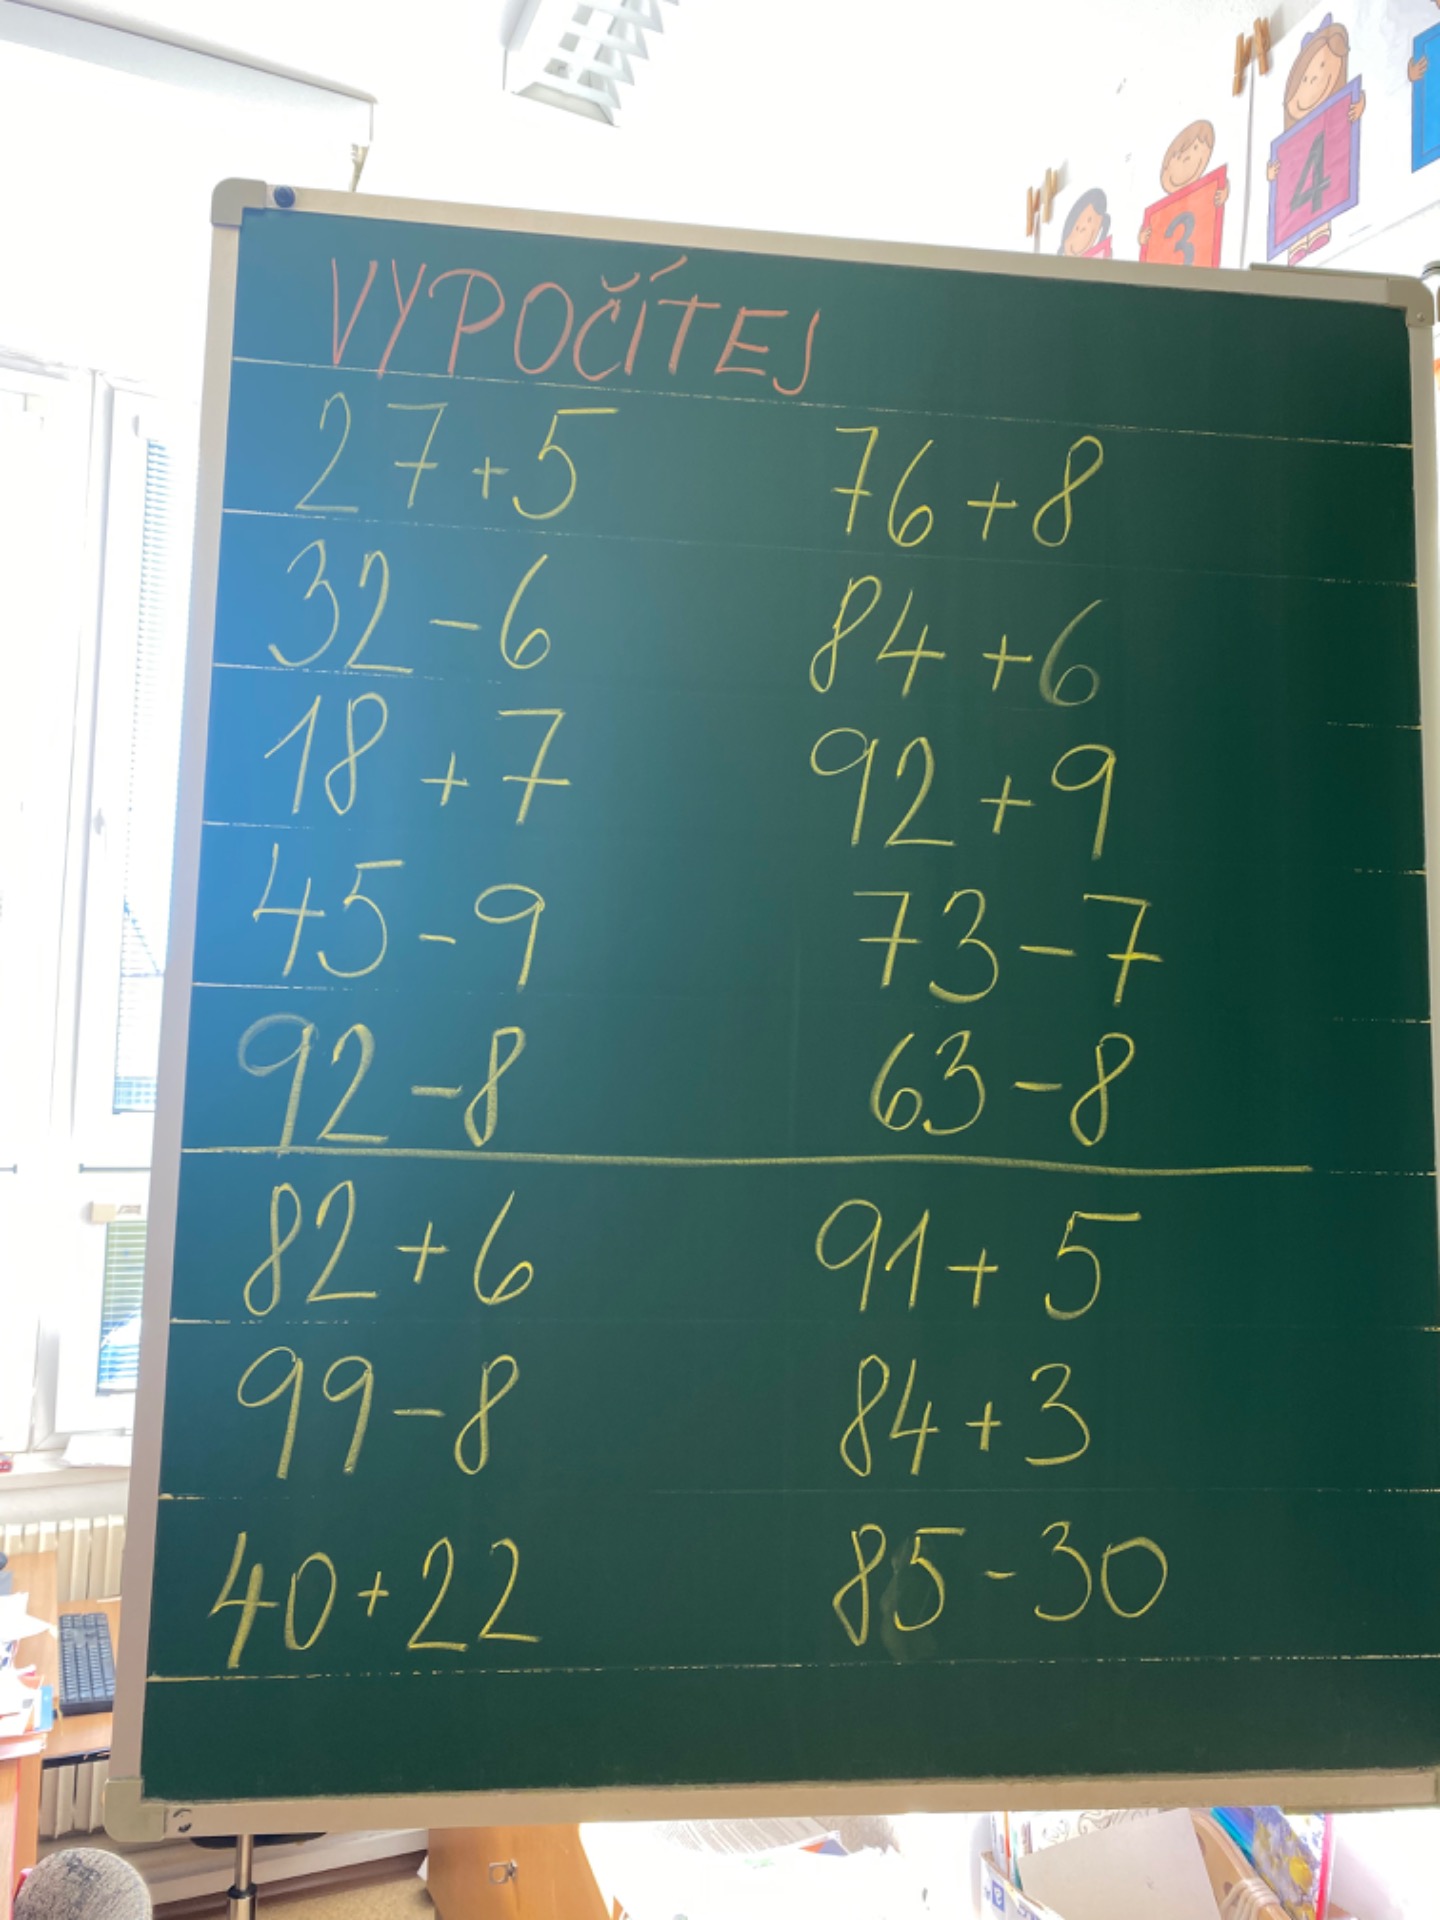 VYPOČÍTEJ
27+5 76+8
32-6 84+6
18+7 92+9
45-9 73-7
92-8 63-8
82+6 91+5
99-8 84+3
40+22 85-30
3
4